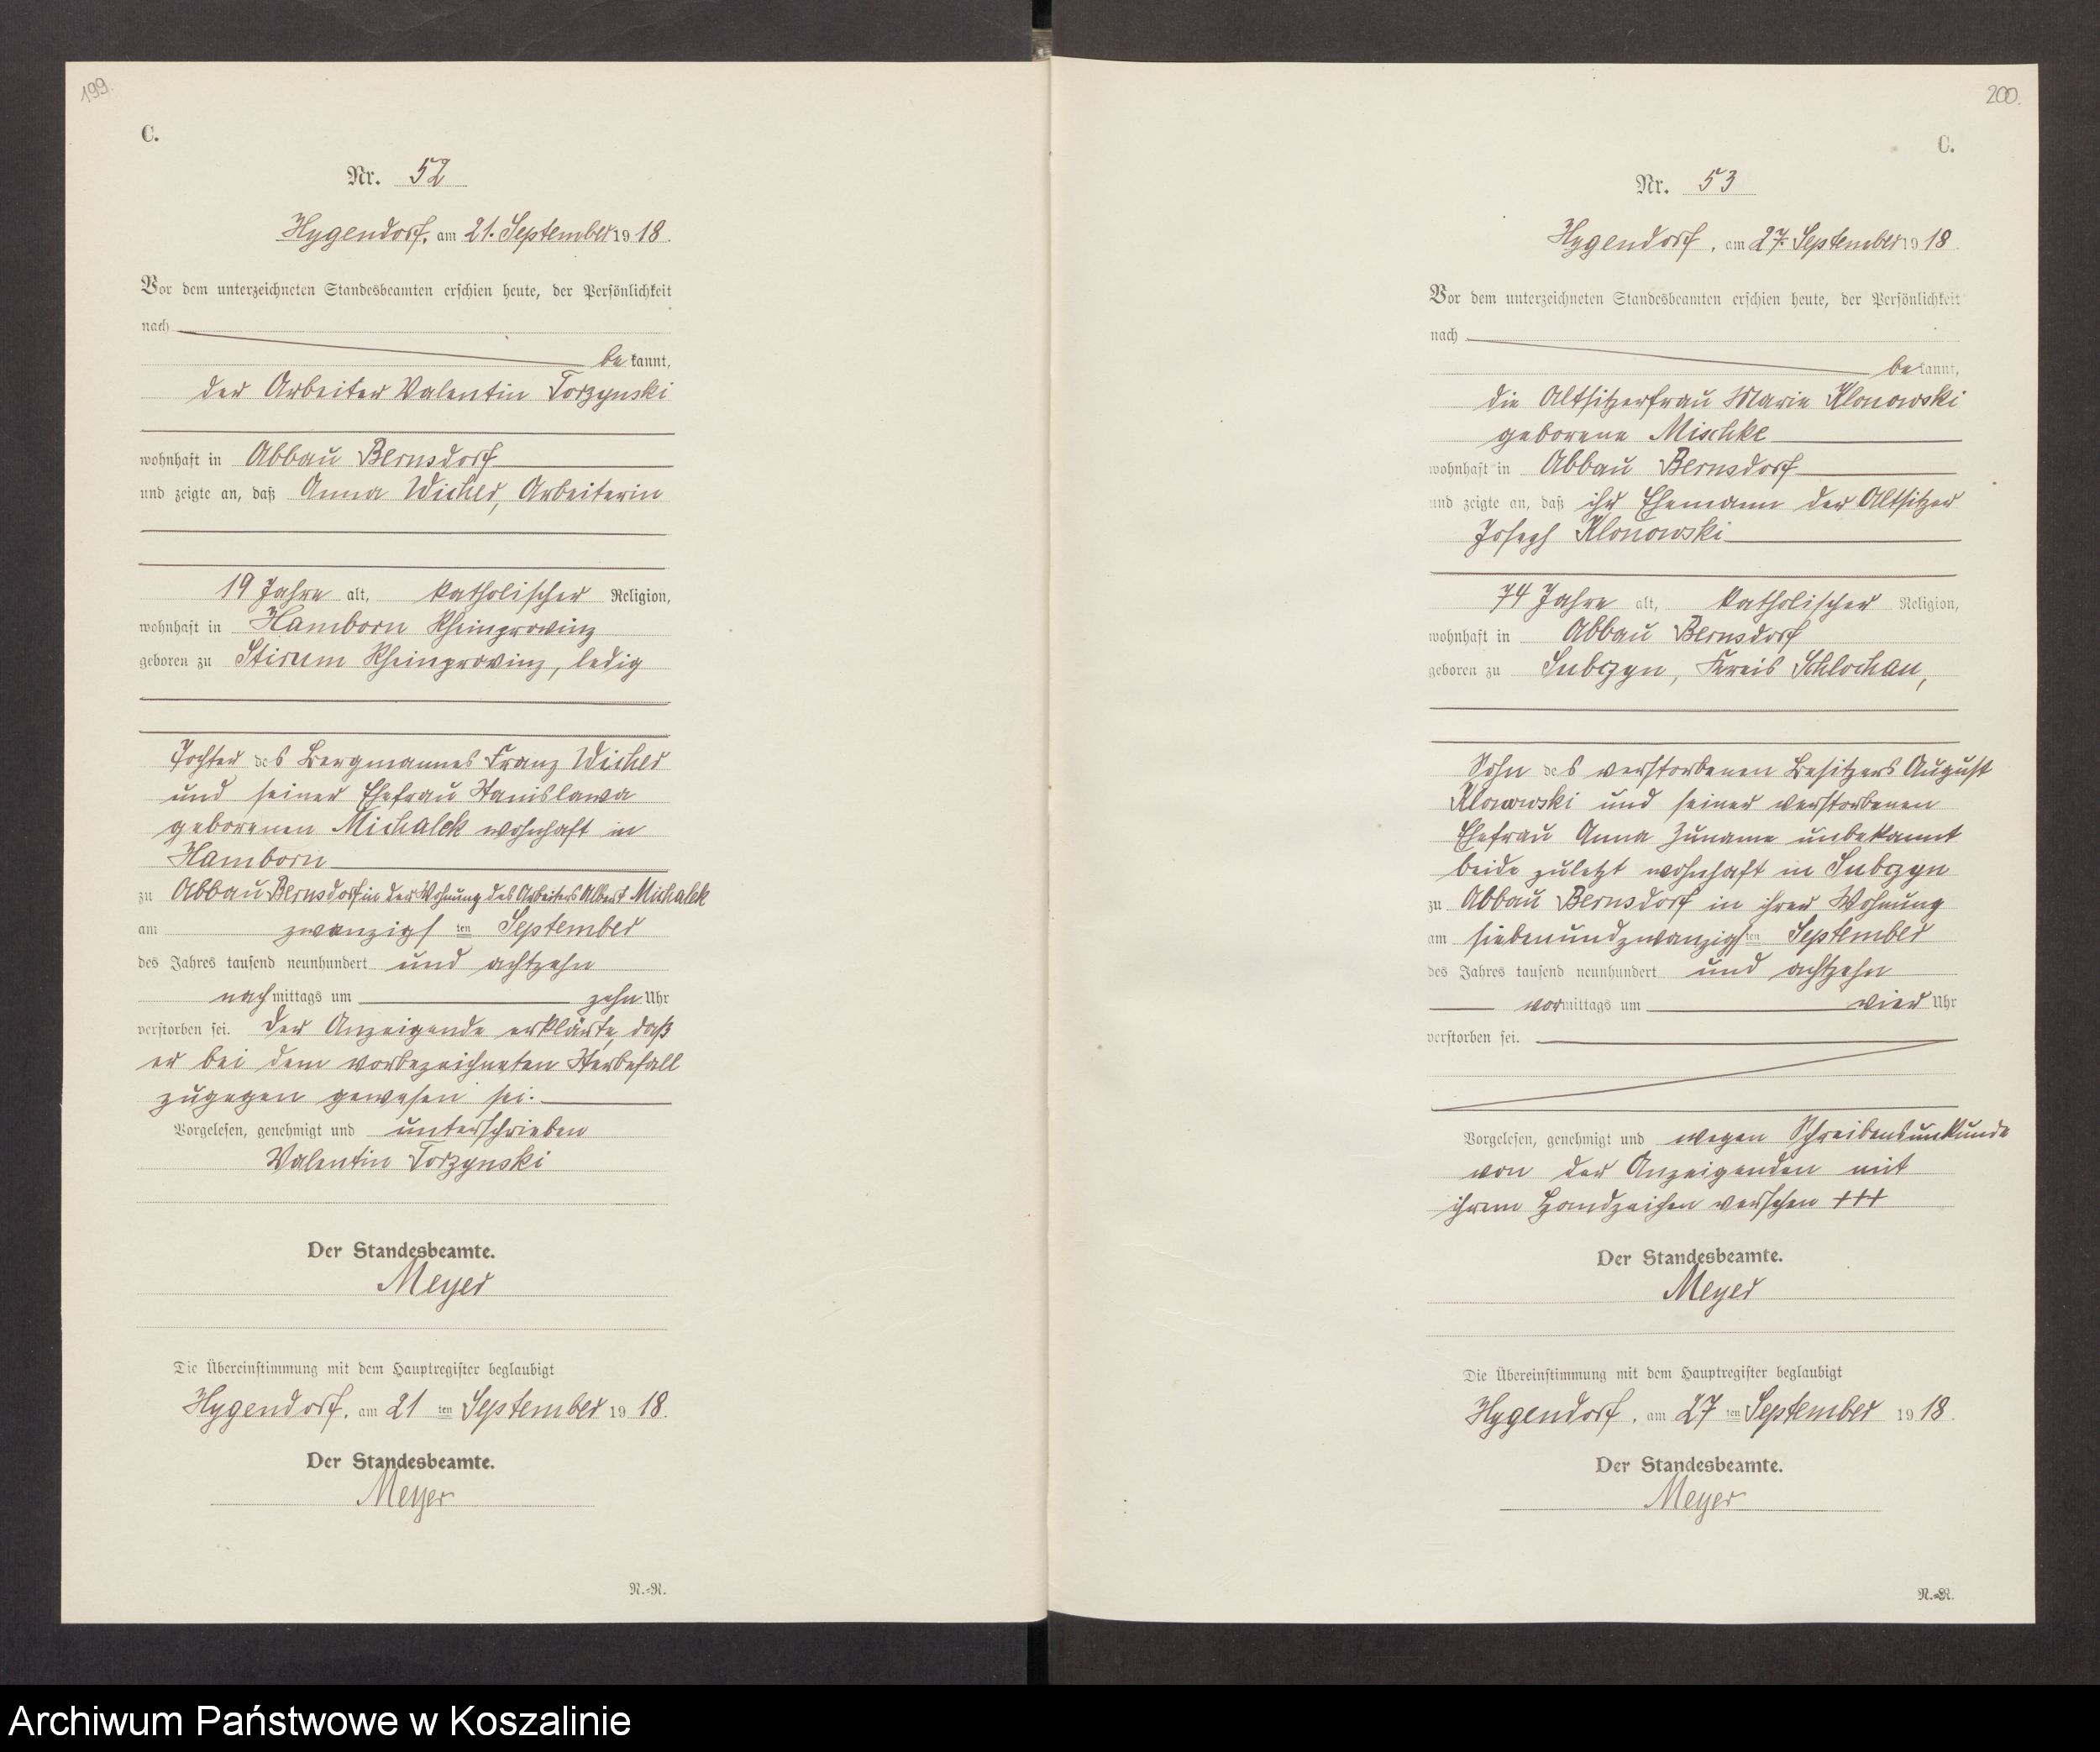 199.
C.
Nr. 52
Hygendorf, am 21. September 1918.
Vor dem unterzeichneten Standesbeamten erschien heute, der Persönlichkeit
nach
bekannt,
der Arbeiter Valentin Torzynski
wohnhaft in Abbau Bernsdorf
und zeigte an, daß Anna Wicher, Arbeiterin
19 Jahre alt, katholischer Religion,
wohnhaft in Hamborn Rheinprovinz
geboren zu Stirum Rheinprovinz, ledig
Tochter des Bergmannes Franz Wicher
und seiner Ehefrau Stanislawa
geborenen Michalek wohnhaft in
Hamborn
zu Abbau Bernsdorf in der Wohnung des Arbeiters Albert Michalek
am zwanzigsten September
des Jahres tausend neunhundert und achtzehn
nachmittags um zehn Uhr
verstorben sei. Der Anzeigende erklärte, daß
er bei dem vorbezeichneten Sterbefall
zugegen gewesen sei.
Vorgelesen, genehmigt und unterschrieben
Valentin Torzynski
Der Standesbeamte.
Meyer
Die Übereinstimmung mit dem Hauptregister beglaubigt
Hygendorf, am 21 ten September 1918.
Der Standesbeamte.
Meyer
N.-N.
200.
C.
Nr. 53
Hygendorf, am 27. September 1918.
Vor dem unterzeichneten Standesbeamten erschien heute, der Persönlichkeit
nach
bekannt,
die Altsitzerfrau Marie Klonowski
geborene Mischke
wohnhaft in Abbau Bernsdorf
und zeigte an, daß ihr Ehemann der Altsitzer
Joseph Klonowski
74 Jahre alt, katholischer Religion,
wohnhaft in Abbau Bernsdorf
geboren zu Lubczyn, Kreis Schlochau,
Sohn des verstorbenen Besitzers August
Klonowski und seiner verstorbenen
Ehefrau Anna Zuname unbekannt
beide zuletzt wohnhaft in Lubczyn
zu Abbau Bernsdorf in ihrer Wohnung
am siebenundzwanzigsten September
des Jahres tausend neunhundert und achtzehn
vormittags um vier Uhr
verstorben sei.
Vorgelesen, genehmigt und wegen Schreibensunkunde
von der Anzeigenden mit
ihrem Handzeichen versehen +++
Der Standesbeamte.
Meyer
Die Übereinstimmung mit dem Hauptregister beglaubigt
Hygendorf, am 27 ten September 1918.
Der Standesbeamte.
Meyer
N.-N.
Archiwum Państwowe w Koszalinie